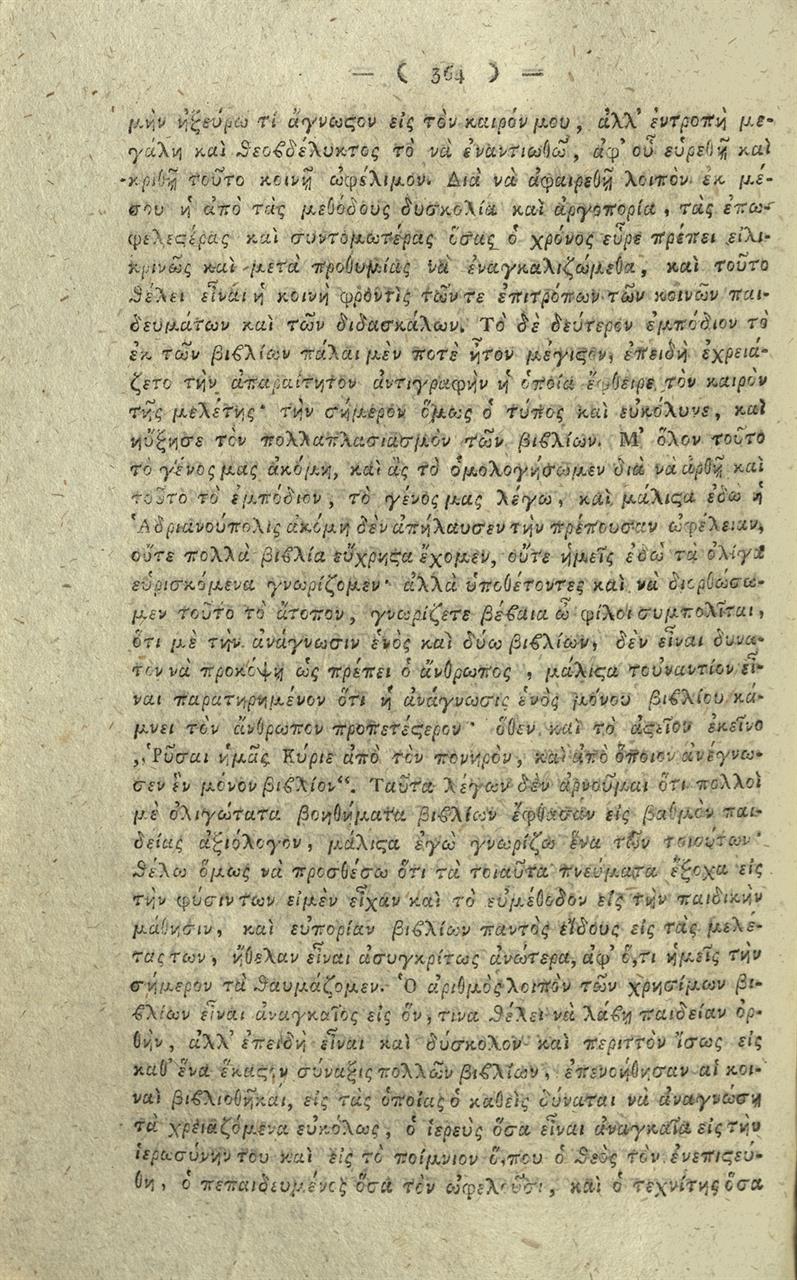 — ( 364 ) —
μὴν ἠξεύρω τὶ ἄγνωςον εἰς τὸν καιρόν μου, ἀλλ' ἐντροπὴ με-
γάλη καὶ Θεοβδέλυκτος τὸ νὰ ἐναντιωθῶ, ἀφ' οὗ εὑρεθῇ καὶ
κριθῇ τοῦτο κοινῇ ὠφέλιμον. Διὰ νὰ ἀφαιρεθῇ λοιπὸν ἐκ μέ-
σου ἡ ἀπὸ τὰς μεθόδους δυσκολία καὶ ἀργοπορία, τὰς ἐπω-
φελεςέρας καὶ συντομωτέρας ὅσας ὁ χρόνος εὗρε πρέπει εἰλι-
κρινῶς καὶ μετὰ προθυμίας νὰ ἐναγκαλιζώμεθα, καὶ τοῦτο
θέλει εἶναι ἡ κοινὴ φροντὶς τῶν τε ἐπιτρόπων τῶν κοινῶν παι-
δευμάτων καὶ τῶν διδασκάλων. Τὸ δὲ δεύτερον ἐμπόδιον τὸ
ἐκ τῶν βιβλίων πάλαι μὲν ποτὲ ἦτον μέγιςον, ἐπειδὴ ἐχρειά-
ζετο τὴν ἀπαραίτητον ἀντιγραφὴν ἡ ὁποία ἔφθειρε τὸν καιρὸν
τῆς μελέτης· τὴν σήμερον ὅμως ὁ τύπος καὶ εὐκόλυνε, καὶ
ηὔξησε τὸν πολλαπλασιασμὸν τῶν βιβλίων. Μ' ὅλον τοῦτο
τὸ γένος μας ἀκόμη, καὶ ἂς τὸ ὁμολογήσωμεν διὰ νὰ ἀρθῇ καὶ
τοῦτο τὸ ἐμπόδιον, τὸ γένος μας λέγω, καὶ μάλιςα ἐδὼ ἡ
Ἀδριανούπολις ἀκόμη δὲν ἀπήλαυσεν τὴν πρέπουσαν ὠφέλειαν,
οὔτε πολλὰ βιβλία εὔχρηςα ἔχομεν, οὔτε ἡμεῖς ἐδὼ τὰ ὀλίγα
εὑρισκόμενα γνωρίζομεν· ἀλλὰ ὑποθέτοντες καὶ νὰ διορθώσω-
μεν τοῦτο τὸ ἄτοπον, γνωρίζετε βέβαια ὦ φίλοι συμπολῖται,
ὅτι μὲ τὴν ἀνάγνωσιν ἑνὸς καὶ δύω βιβλίων, δὲν εἶναι δυνα-
τὸν νὰ προκόψῃ ὡς πρέπει ὁ ἄνθρωπος, μάλιςα τοὐναντίον εἶ-
ναι παρατηρημένον ὅτι ἡ ἀνάγνωσις ἑνὸς μόνου βιβλίου κά-
μνει τὸν ἄνθρωπον προπετέςερον· ὅθεν καὶ τὸ ἀςεῖον ἐκεῖνο
,,Ῥῦσαι ἡμᾶς Κύριε ἀπὸ τὸν πονηρὸν, καὶ ἀπὸ ὅποιον ἀνέγνω-
σεν ἓν μόνον βιβλίον‟. Ταῦτα λέγων δὲν ἀρνοῦμαι ὅτι πολλοὶ
μὲ ὀλιγώτατα βοηθήματα βιβλίων ἔφθασαν εἰς βαθμὸν παι-
δείας ἀξιόλογον, μάλιςα ἐγὼ γνωρίζω ἕνα τῶν τοιούτων·
θέλω ὅμως νὰ προσθέσω ὅτι τὰ τοιαῦτα πνεύματα ἔξοχα εἰς
τὴν φύσιν των εἰμὲν εἶχαν καὶ τὸ εὐμέθοδον εἰς τὴν παιδικὴν
μάθησιν, καὶ εὐπορίαν βιβλίων παντὸς εἴδους εἰς τὰς μελέ-
τας των, ἤθελαν εἶναι ἀσυγκρίτως ἀνώτερα, ἀφ' ὅ,τι ἡμεῖς τὴν
σήμερον τὰ θαυμάζομεν. Ὁ ἀριθμὸς λοιπὸν τῶν χρησίμων βι-
βλίων εἶναι ἀναγκαῖος εἰς ὅν,τινα θέλει νὰ λάβῃ παιδείαν ὀρ-
θὴν, ἀλλ' ἐπειδὴ εἶναι καὶ δύσκολον καὶ περιττὸν ἴσως εἰς
καθ' ἕνα ἕκαςον σύναξις πολλῶν βιβλίων, ἐπενοήθησαν αἱ κοι-
ναὶ βιβλιοθῆκαι, εἰς τὰς ὁποίας ὁ καθεὶς δύναται νὰ ἀναγνώσῃ
τὰ χρειαζόμενα εὐκόλως, ὁ ἱερεὺς ὅσα εἶναι ἀναγκαῖα εἰς τὴν
ἱερωσύνην του καὶ εἰς τὸ ποίμνιον ὅ,που ὁ Θεὸς τὸν ἐνεπιςεύ-
θη, ὁ πεπαιδευμένος ὅσα τὸν ὠφελοῦσι, καὶ ὁ τεχνίτης ὅσα